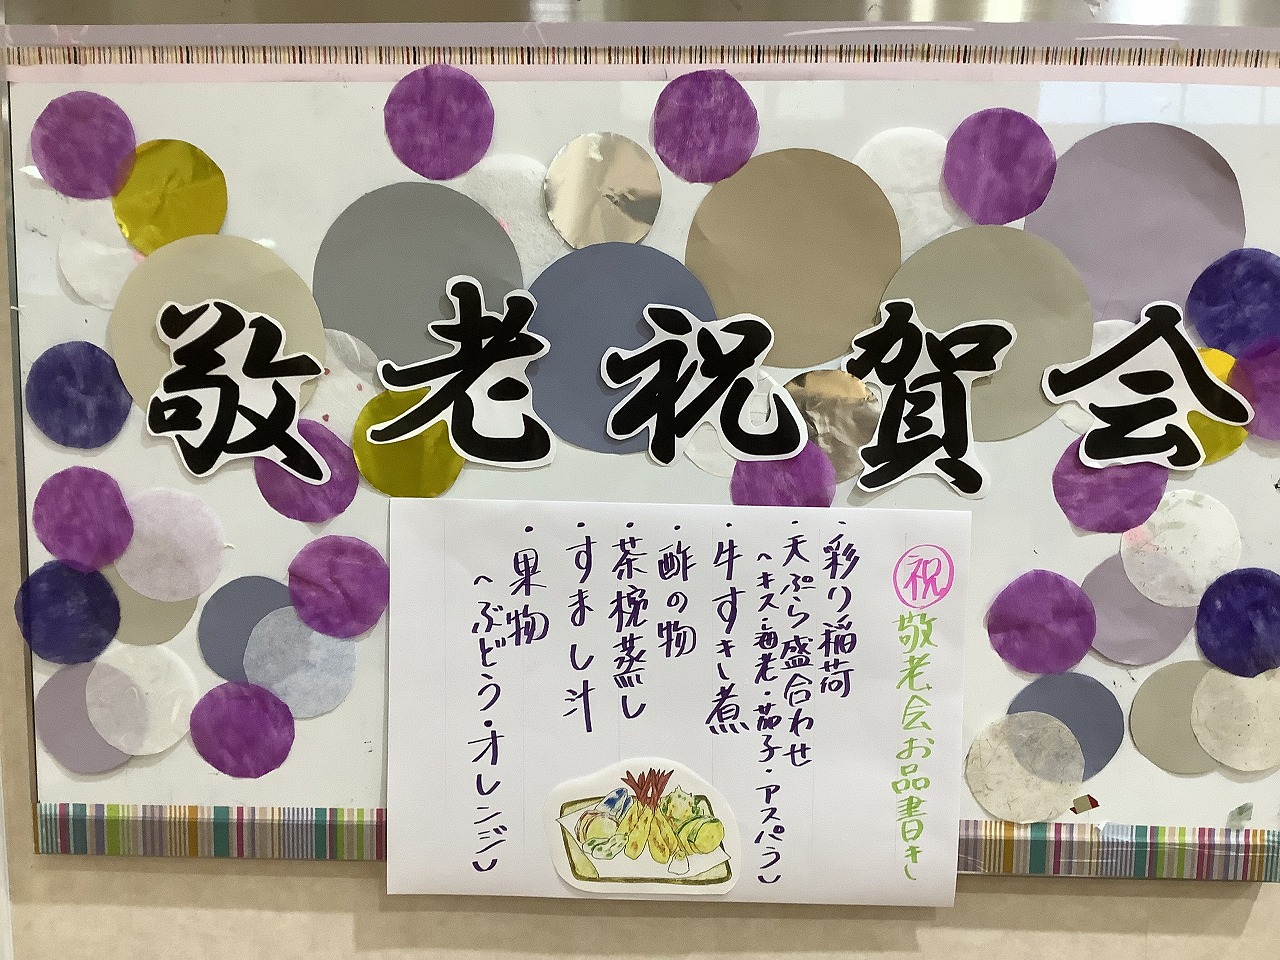 敬老祝賀会
祝 敬老会お品書き
・彩り稲荷
・天ぷら盛合わせ
(キス・海老・茄子・アスパラ)
・牛すき煮
・酢の物
・茶椀蒸し
・すまし汁
・果物
(ぶどう・オレンジ)